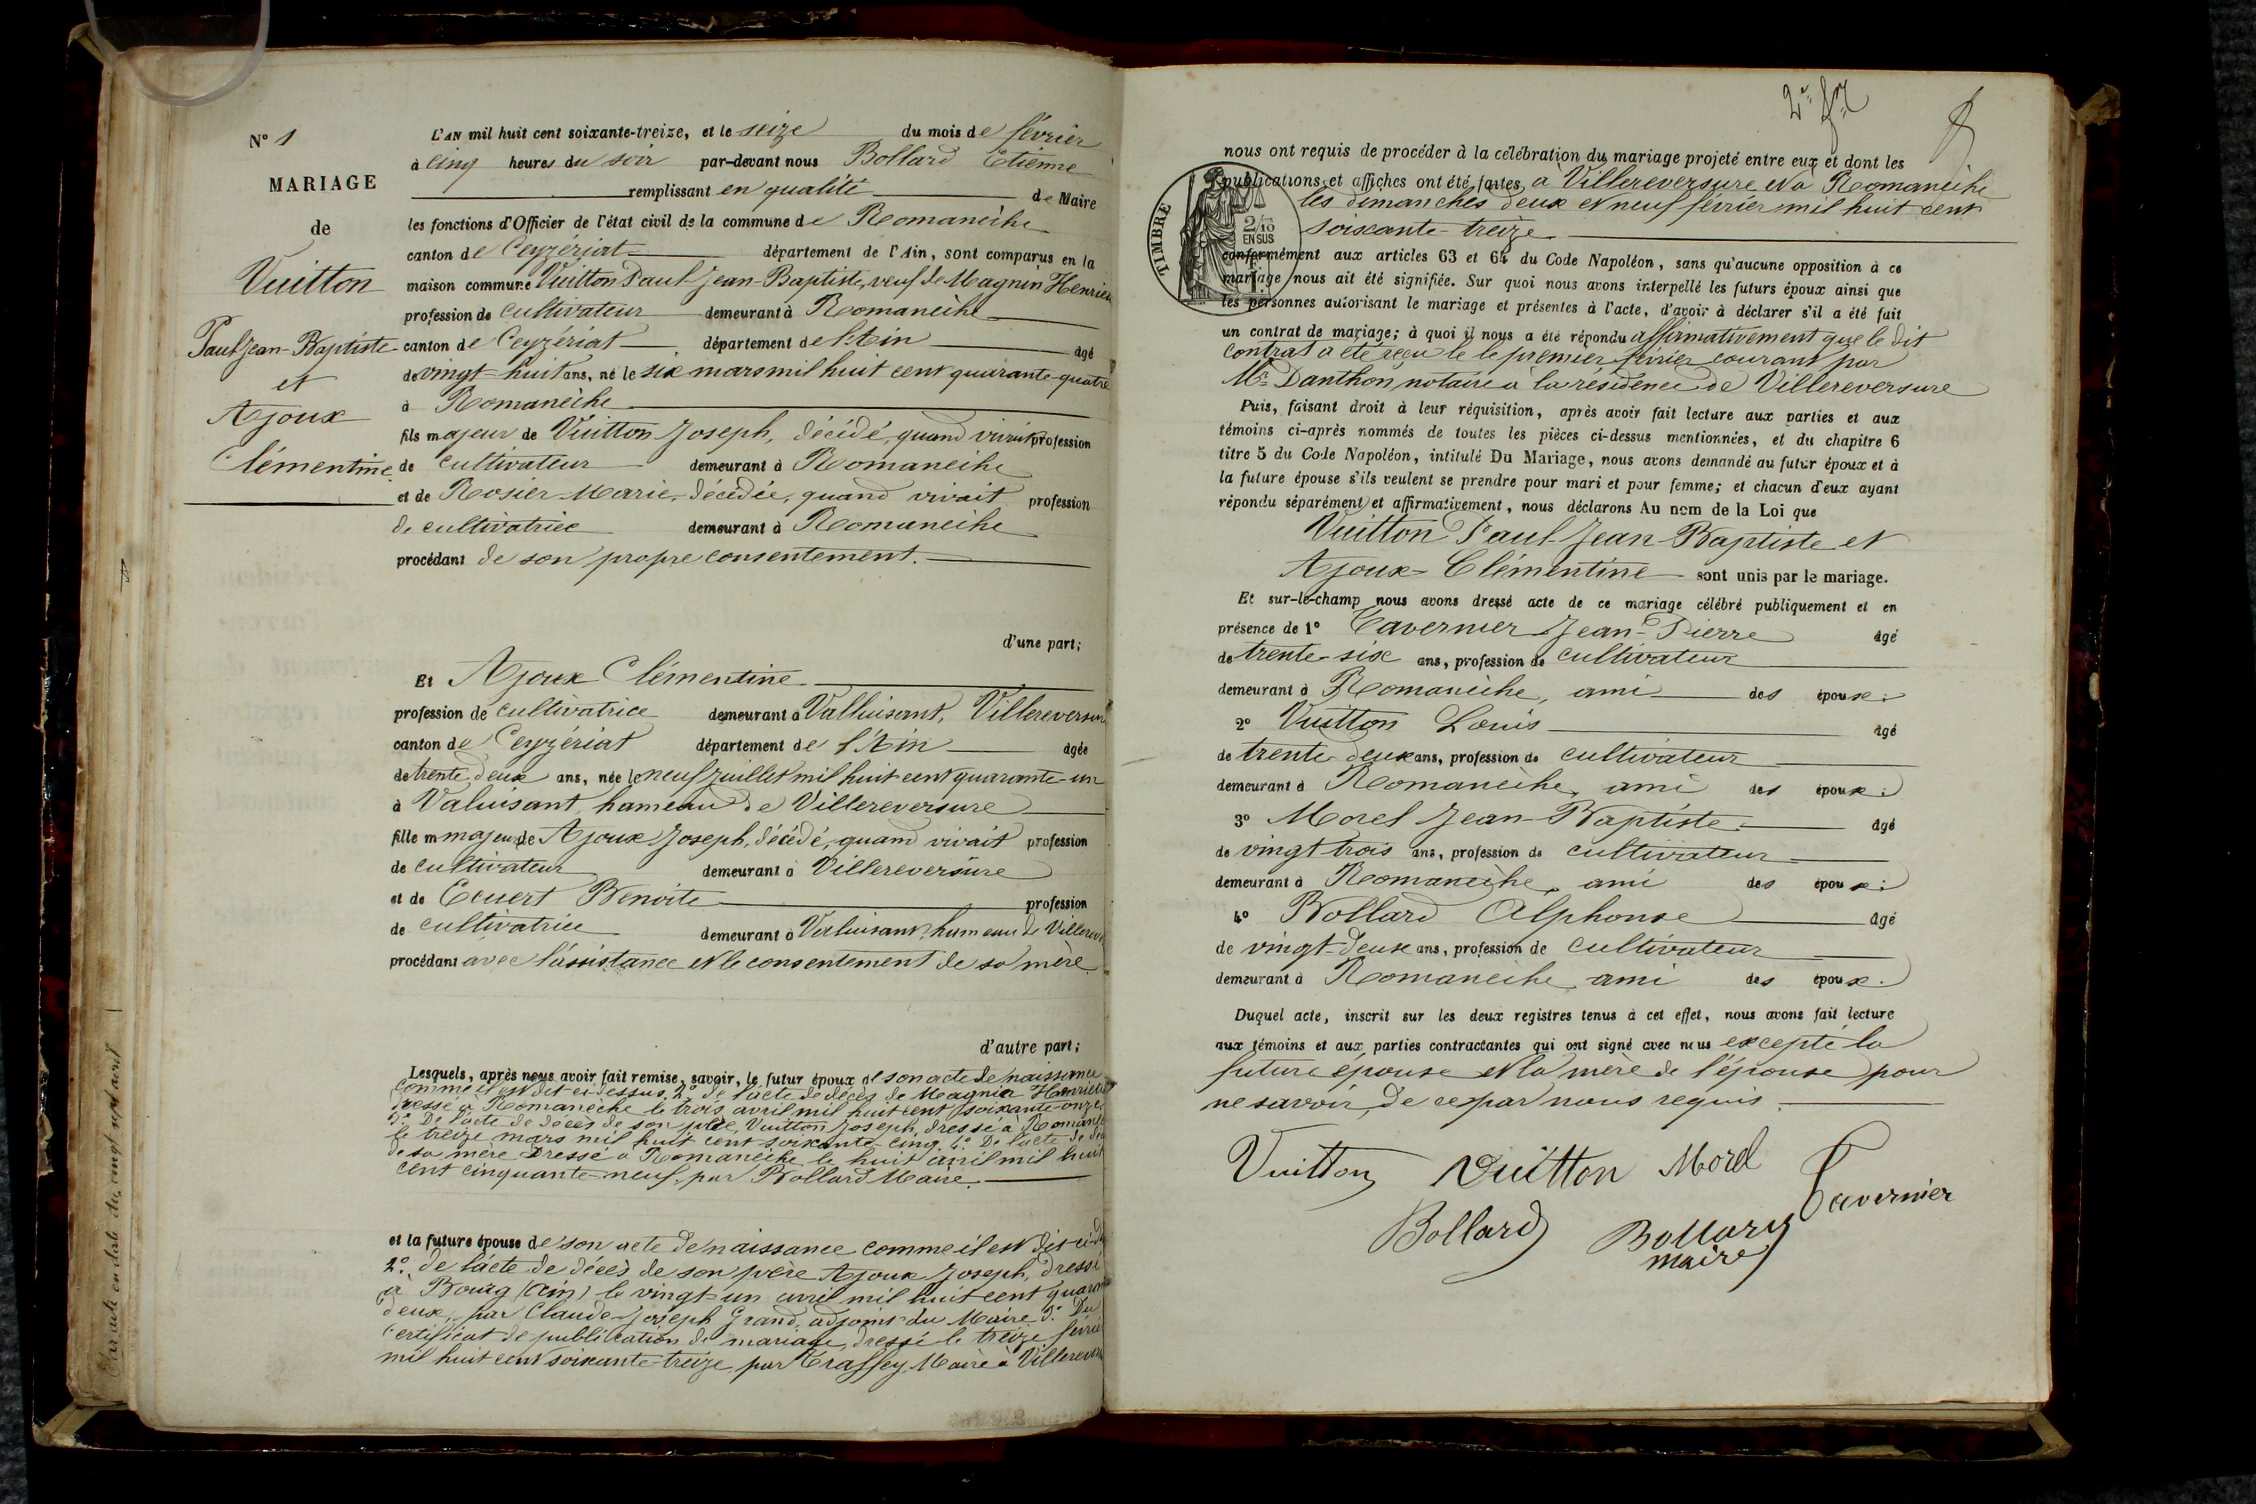 N° 1
MARIAGE
de
Vuitton
Paul Jean-Baptiste
et
Ajoux
Clémentine
L'AN mil huit cent soixante-treize, et le seize du mois de février
à cinq heures du soir par-devant nous Bollard Etienne
remplissant en qualité de Maire
les fonctions d'Officier de l'état civil de la commune de Romanèche
canton de Ceyzériat département de l'Ain, sont comparus en la
maison commune Vuitton Paul Jean-Baptiste, veuf de Magnin Henrie
profession de cultivateur demeurant à Romanèche
canton de Ceyzériat département de l'Ain âgé
de vingt-huit ans, né le six mars mil huit cent quarante-quatre
à Romanèche
fils majeur de Vuitton Joseph, décédé, quand vivait profession
de cultivateur demeurant à Romanèche
et de Rosier Marie, décédée, quand vivait profession
de cultivatrice demeurant à Romanèche
procédant de son propre consentement.
d'une part;
Et Ajoux Clémentine
profession de cultivatrice demeurant à Valluisant, Villereversure
canton de Ceyzériat département de l'Ain âgée
de trente deux ans, née le neuf juillet mil huit cent quarante-un
à Valuisant hameau de Villereversure
fille majeure de Ajoux Joseph, décédé, quand vivait profession
de cultivateur demeurant à Villereversure
et de Ecuert Benoite profession
de cultivatrice demeurant à Valuisant, hameau de Villerev
procédant avec l'assistance et le consentement de sa mère
d'autre part;
Lesquels, après nous avoir fait remise, savoir, le futur époux de son acte de naissance
comme il est dit ci-dessus, 2° de l'acte de décès de Magnin Henriette
dressé à Romanèche le trois avril mil huit cent soixante-onze
3° De l'acte de décès de son père, Vuitton Joseph, dressé à Romanè
le treize mars mil huit cent soixante-cinq 4° De l'acte de déc
de sa mère Dressé à Romanèche le huit avril mil huit
cent cinquante-neuf, par Bollard Maire.
et la future épouse de son acte de naissance comme il est dit ci-d
2° de l'acte de décès de son père Ajoux Joseph, dressé
à Bourg (Ain) le vingt-un avril mil huit cent quaran
deux, par Claude-Joseph Grand, adjoint du Maire 3° Du
certificat de publication de mariage, dressé le treize févrie
mil huit cent soixante-treize par Traffey Maire à Villerever
nous ont requis de procéder à la célébration du mariage projeté entre eux et dont les
publications et affiches ont été faites, à Villereversure et à Romanèche
les dimanches deux et neuf février mil huit cent
soixante-treize
TIMBRE
2/10
EN SUS
conformément aux articles 63 et 64 du Code Napoléon, sans qu'aucune opposition à ce
mariage nous ait été signifiée. Sur quoi nous avons interpellé les futurs époux ainsi que
les personnes autorisant le mariage et présentes à l'acte, d'avoir à déclarer s'il a été fait
un contrat de mariage; à quoi il nous a été répondu affirmativement que le dit
contrat a été reçu le le premier février courant par
Me Danthon, notaire à la résidence de Villereversure
Puis, faisant droit à leur réquisition, après avoir fait lecture aux parties et aux
témoins ci-après nommés de toutes les pièces ci-dessus mentionnées, et du chapitre 6
titre 5 du Code Napoléon, intitulé Du Mariage, nous avons demandé au futur époux et à
la future épouse s'ils veulent se prendre pour mari et pour femme; et chacun d'eux ayant
répondu séparément et affirmativement, nous déclarons Au nom de la Loi que
Vuitton Paul Jean-Baptiste et
Ajoux Clémentine sont unis par le mariage.
Et sur-le-champ nous avons dressé acte de ce mariage célébré publiquement et en
présence de 1° Tavernier Jean-Pierre âgé
de trente-six ans, profession de cultivateur
demeurant à Romanèche, ami des époux:
2° Vuitton Louis âgé
de trente-deux ans, profession de cultivateur
demeurant à Romanèche, ami des époux:
3° Morel Jean-Baptiste âgé
de vingt trois ans, profession de cultivateur
demeurant à Romanèche, ami des époux:
4° Bollard Alphonse âgé
de vingt-deux ans, profession de cultivateur
demeurant à Romanèche ami des époux.
Duquel acte, inscrit sur les deux registres tenus à cet effet, nous avons fait lecture
aux témoins et aux parties contractantes qui ont signé avec nous excepté la
future épouse et la mère de l'épouse pour
ne savoir, de ce par nous requis.
Vuitton Vuitton Morel Tavernier
Bollard Bollard
maire